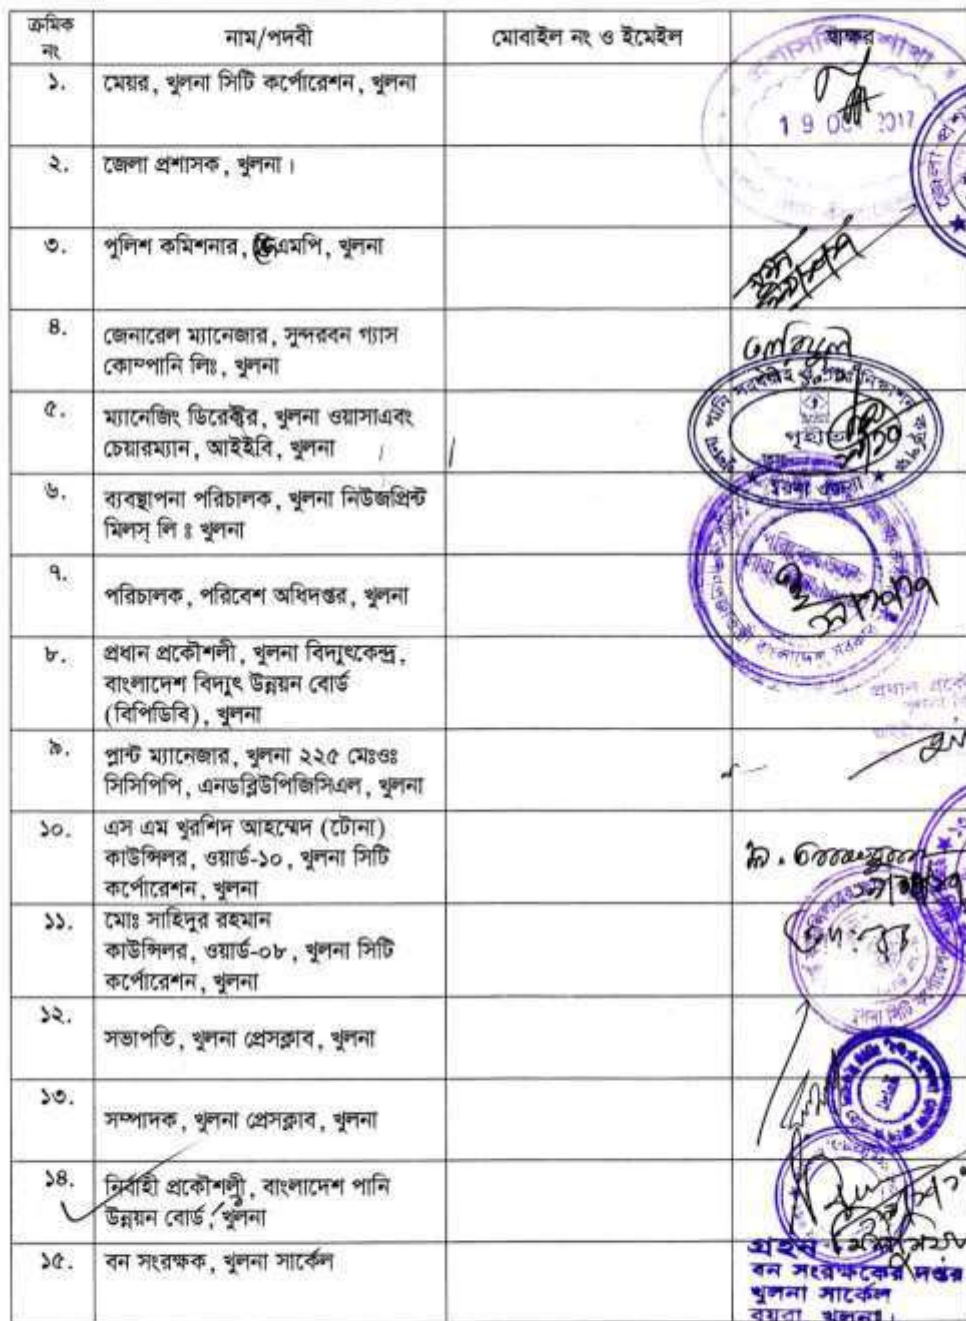 ক্রমিক নং
নাম/পদবী
মোবাইল নং ও ইমেইল
স্বাক্ষর
১.
মেয়র, খুলনা সিটি কর্পোরেশন, খুলনা
19 OCT 2017
২.
জেলা প্রশাসক, খুলনা।
৩.
পুলিশ কমিশনার, কেএমপি, খুলনা
৪.
জেনারেল ম্যানেজার, সুন্দরবন গ্যাস
কোম্পানি লিঃ, খুলনা
৫.
ম্যানেজিং ডিরেক্টর, খুলনা ওয়াসাএবং
চেয়ারম্যান, আইইবি, খুলনা
৬.
ব্যবস্থাপনা পরিচালক, খুলনা নিউজপ্রিন্ট
মিলস্ লি ঃ খুলনা
৭.
পরিচালক, পরিবেশ অধিদপ্তর, খুলনা
৮.
প্রধান প্রকৌশলী, খুলনা বিদ্যুৎকেন্দ্র,
বাংলাদেশ বিদ্যুৎ উন্নয়ন বোর্ড
(বিপিডিবি), খুলনা
৯.
প্লান্ট ম্যানেজার, খুলনা ২২৫ মেঃওঃ
সিসিপিপি, এনডব্লিউপিজিসিএল, খুলনা
১০.
এস এম খুরশিদ আহম্মেদ (টোনা)
কাউন্সিলর, ওয়ার্ড-১০, খুলনা সিটি
কর্পোরেশন, খুলনা
১১.
মোঃ সাহিদুর রহমান
কাউন্সিলর, ওয়ার্ড-০৮, খুলনা সিটি
কর্পোরেশন, খুলনা
১২.
সভাপতি, খুলনা প্রেসক্লাব, খুলনা
১৩.
সম্পাদক, খুলনা প্রেসক্লাব, খুলনা
১৪.
নির্বাহী প্রকৌশলী, বাংলাদেশ পানি
উন্নয়ন বোর্ড, খুলনা
১৫.
বন সংরক্ষক, খুলনা সার্কেল
গ্রহন
বন সংরক্ষকের দপ্তর
খুলনা সার্কেল
বয়রা, খুলনা।